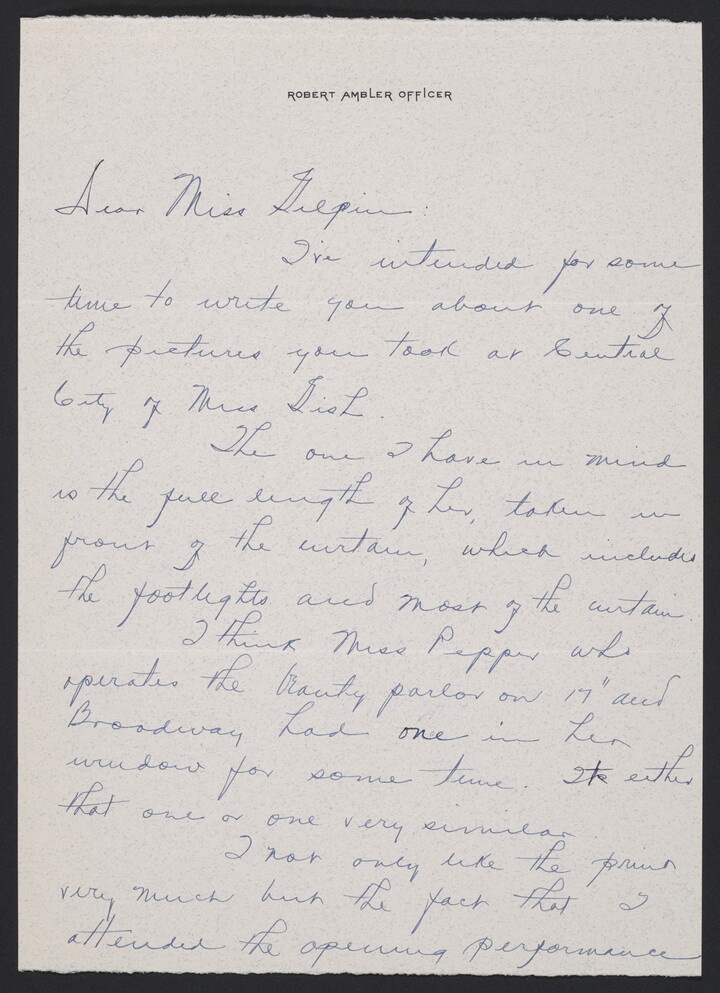 ROBERT AMBLER OFFICER
Dear Miss Gilpin:
I've intended for some
time to write you about one of
the pictures you took at Central
City of Miss Gish.
The one I have in mind
is the full length of her, taken in
front of the curtain, which includes
the footlights and most of the curtain.
I think Miss Pepper who
operates the Beauty parlor on 17" and
Broadway had one in her
window for some time. Its either
that one or one very similar.
I not only like the print
very much but the fact that I
attended the opening performance